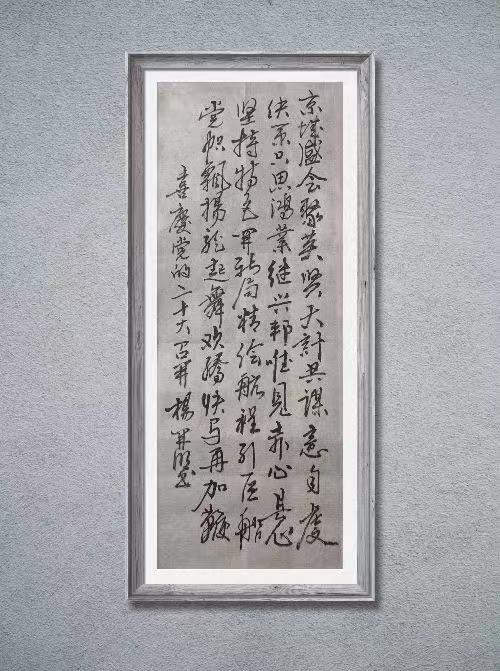 京城盛会聚英贤大计共谋意自虔
决策只思鸿业继兴邦唯见赤心悬
坚持特色开新局精绘航程引巨船
党帜飘扬龙起舞欢腾快马再加鞭
喜庆党的二十大召开 杨开书